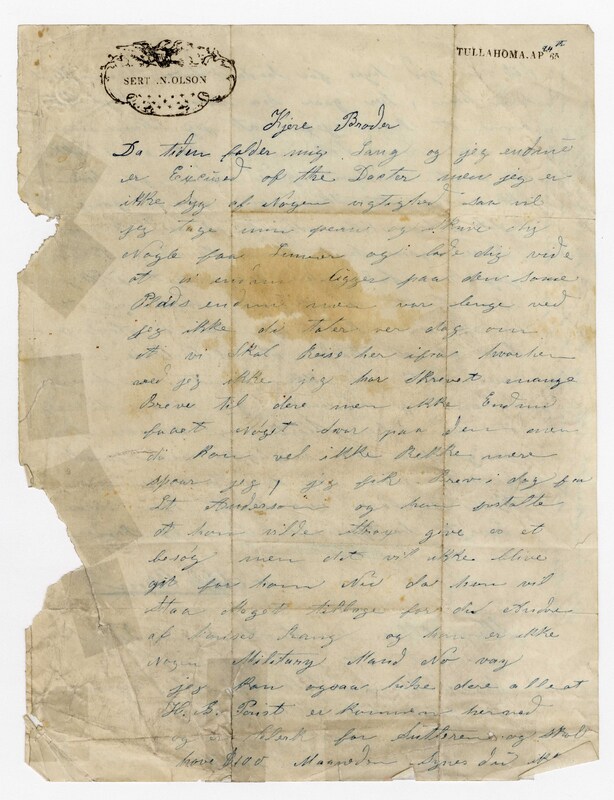 SERT .N.OLSON
TULLAHOMA.AP 24th 65
Kjere Broder
Da tiden falder mig Lang og jeg endnu
er Excused of the Docter men jeg er
ikke syg af Nogen vigtighed saa vil
jeg tage min penn og Skrive dig
Nogle faa Linnier og lade dig vide
at vi endnu ligger paa den samme
Plads endnu men vor lenge ved
jeg ikke di taler ver dag om
at vi Skal Reise her ifra hvorhen
ved jeg ikke jeg har Skrevet mange
Breve til dere men ikke Endnu
faaet Noget Svar paa dem men
di kan vel ikke Rekke mere
jeg, jeg fik Brev i dag fra
Lt Anderson og han
at han vilde give os et
besøg men det vil ikke blive
for ham Nu da han vil
staa Noget tilbage for di Andre
af Rang og han er ikke
Nogen Military Mand No vay
jeg kan ogsaa hilse dere alle at
H. B. er kommen herned
og er Clerk for Sutteren og skal
have $100 Maaneden Synes du ikke